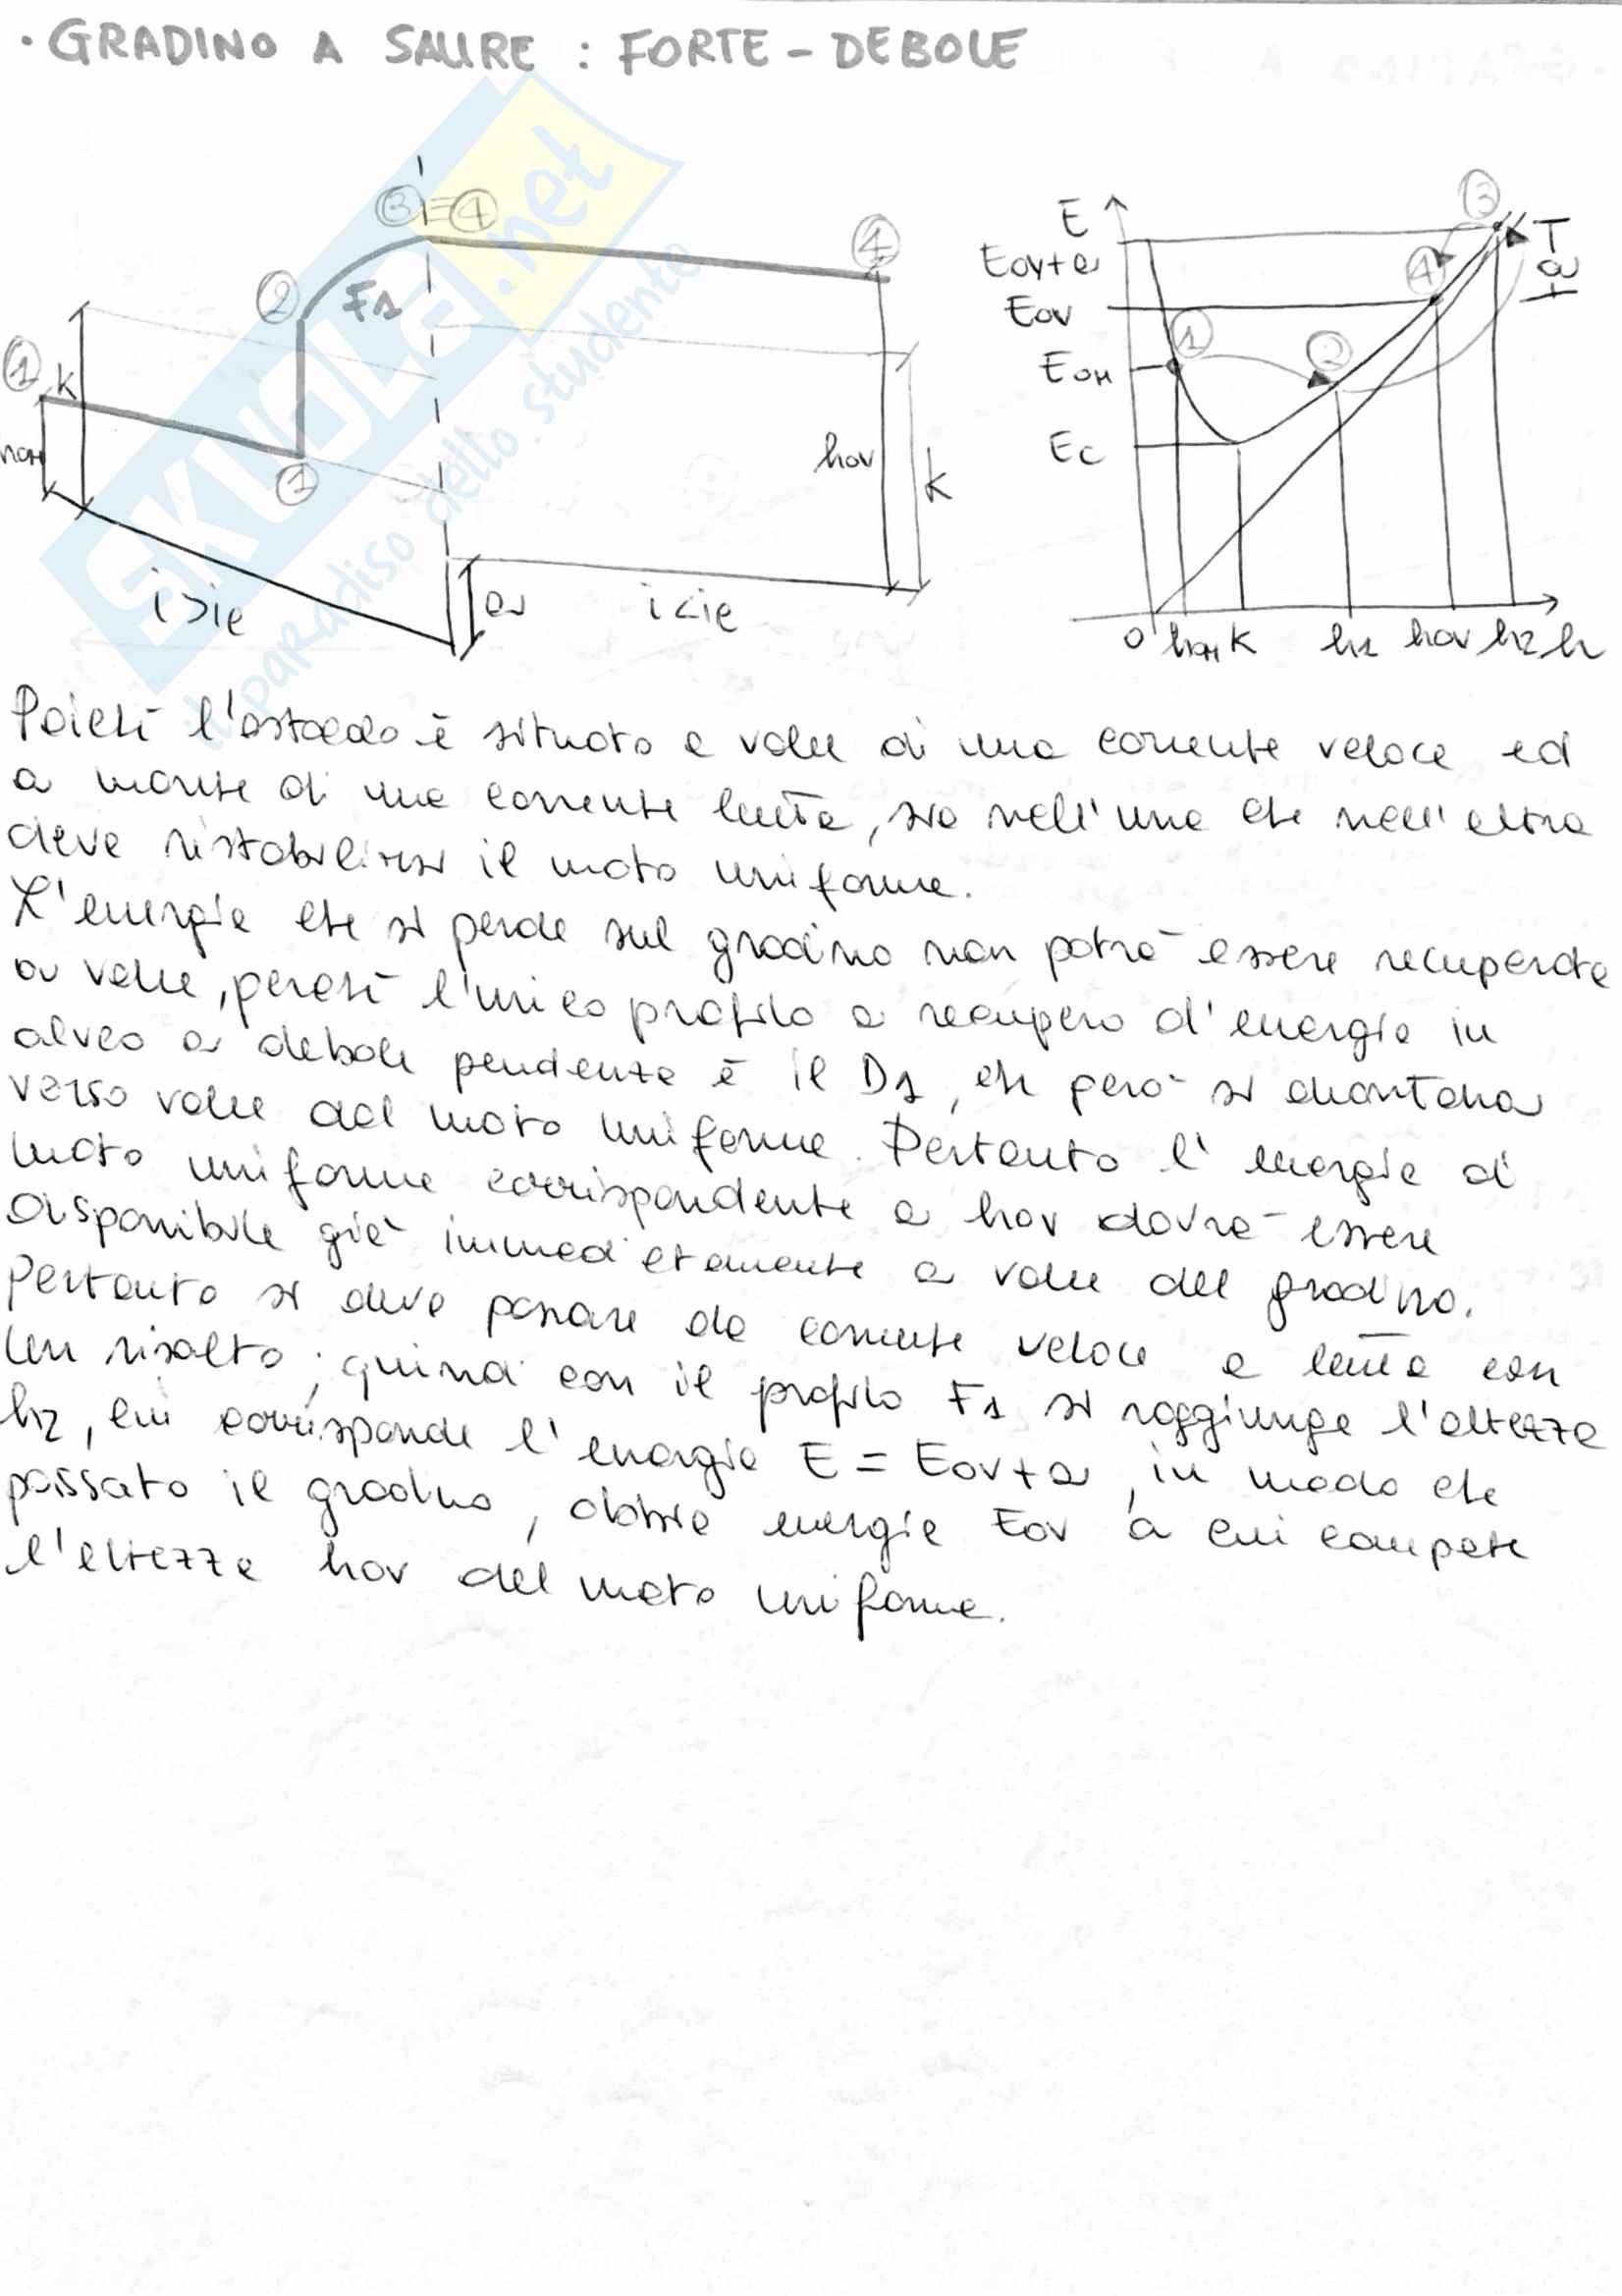 · GRADINO A SALIRE : FORTE - DEBOLE
3 = 4
4
2
F1
1
K
hoM
1
hov
K
a
i > ic
i < ic
SKUOLA.net
il paradiso dello studente
E
Eov+a
Eov
EoM
Ec
3
4
1
2
a
0 hoM K h1 hov h2 h
Poiché l'ostacolo è situato a valle di una corrente veloce ed
a monte di una corrente lenta, sia nell'una che nell'altra
deve ristabilirsi il moto uniforme.
L'energia che si perde sul gradino non potrà essere recuperata
a valle, perché l'unico profilo a recupero d'energia in
alveo a debole pendenza è il D1, che però si allontana
verso valle dal moto uniforme. Pertanto l'energia di
moto uniforme corrispondente a hov dovrà essere
disponibile già immediatamente a valle del gradino.
Pertanto si deve passare da corrente veloce a lenta con
un risalto; quindi con il profilo F1 si raggiunge l'altezza
h2, cui corrisponde l'energia E = Eov+a, in modo che
passato il gradino, abbia energia Eov a cui compete
l'altezza hov del moto uniforme.